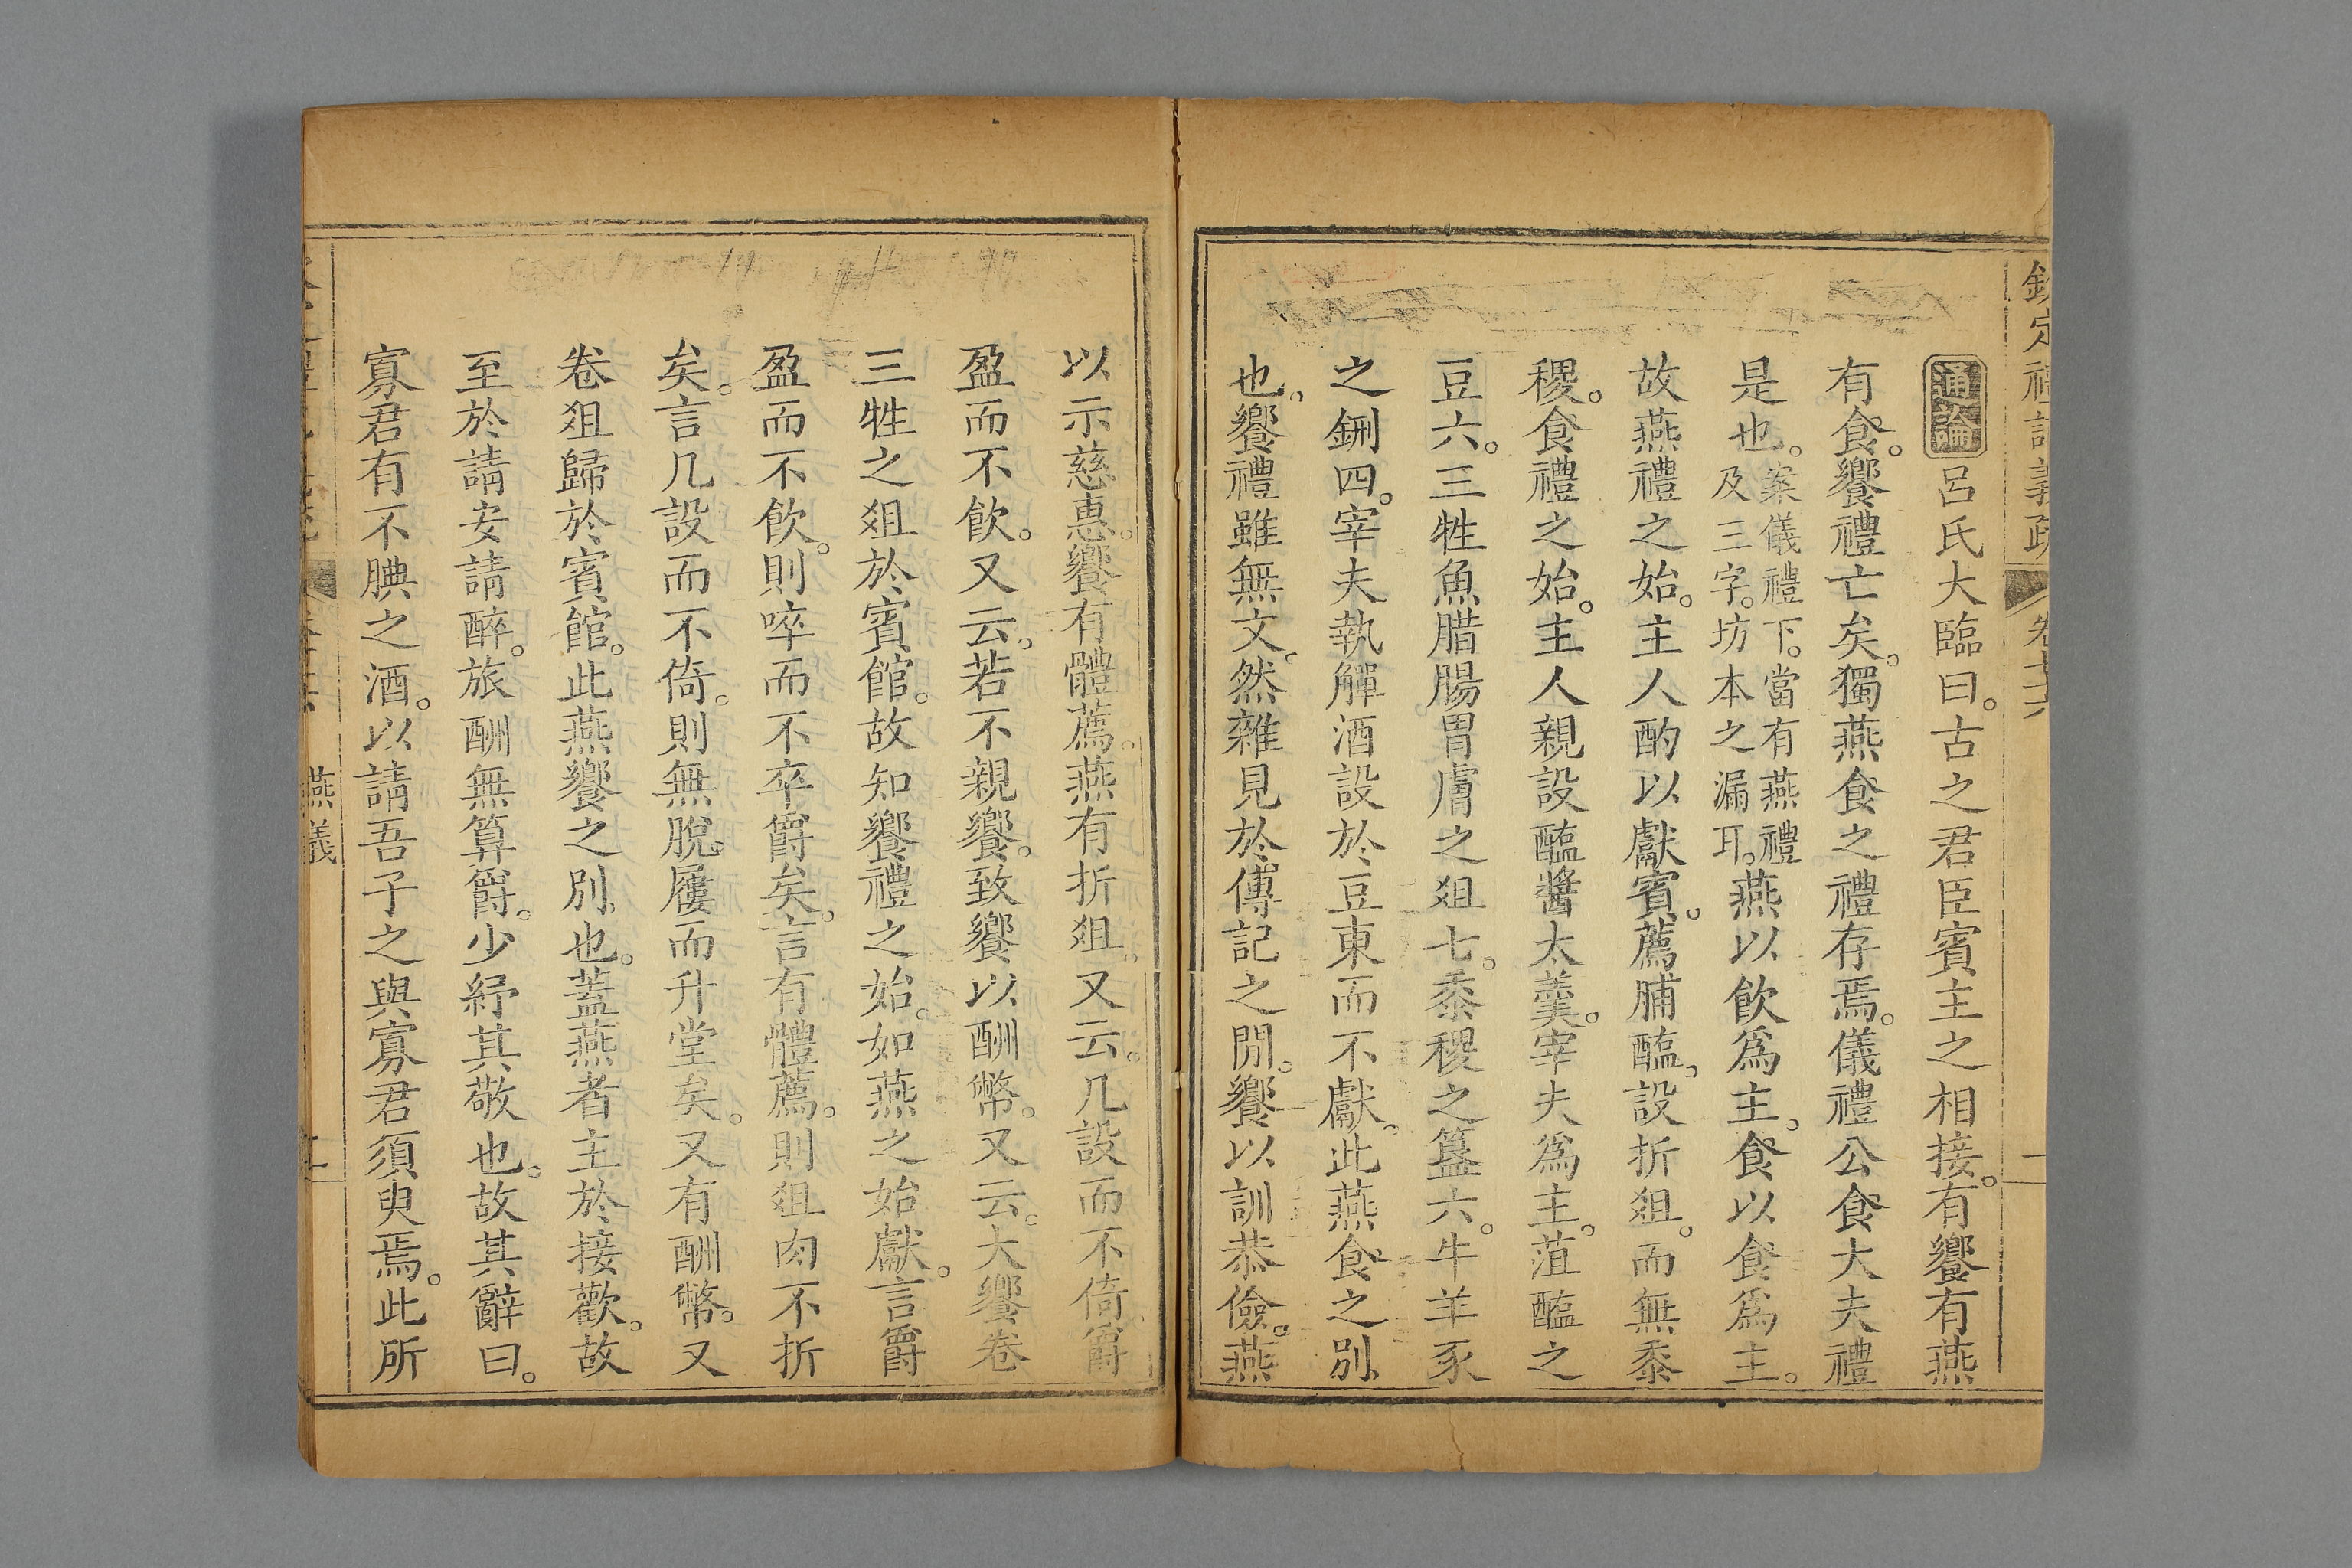 欽定禮記義疏 卷七十六 一
通論呂氏大臨曰。古之君臣賓主之相接。有饗有燕
有食。饗禮亡矣。獨燕食之禮存焉。儀禮公食大夫禮
是也。案儀禮下。當有燕禮
及三字。坊本之漏耳。燕以飲爲主。食以食爲主。
故燕禮之始。主人酌以獻賓。薦脯醢。設折俎。而無黍
稷。食禮之始。主人親設醯醬太羹。宰夫爲主。菹醢之
豆六。三牲魚腊腸胃膚之俎七。黍稷之簋六。牛羊豕
之鉶四。宰夫執觶酒設於豆東而不獻。此燕食之別
也。饗禮雖無文。然雜見於傳記之閒。饗以訓恭儉。燕
以示慈惠。饗有體薦。燕有折俎。又云。几設而不倚。爵
盈而不飲。又云。若不親饗。致饗以酬幣。又云。大饗卷
三牲之俎於賓館。故知饗禮之始。如燕之始獻。言爵
盈而不飲。則啐而不卒爵矣。言有體薦。則俎肉不折
矣。言几設而不倚。則無脫屨而升堂矣。又有酬幣。又
卷俎歸於賓館。此燕饗之別也。蓋燕者主於接歡。故
至於請安請醉。旅酬無算爵。少紓其敬也。故其辭曰。
寡君有不腆之酒。以請吾子之與寡君須臾焉。此所
燕儀